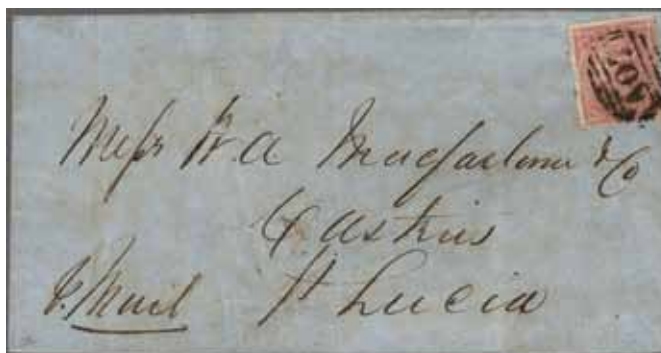 Messrs W. A Macfarlane & Co
Castries
St Lucia
P. Mail